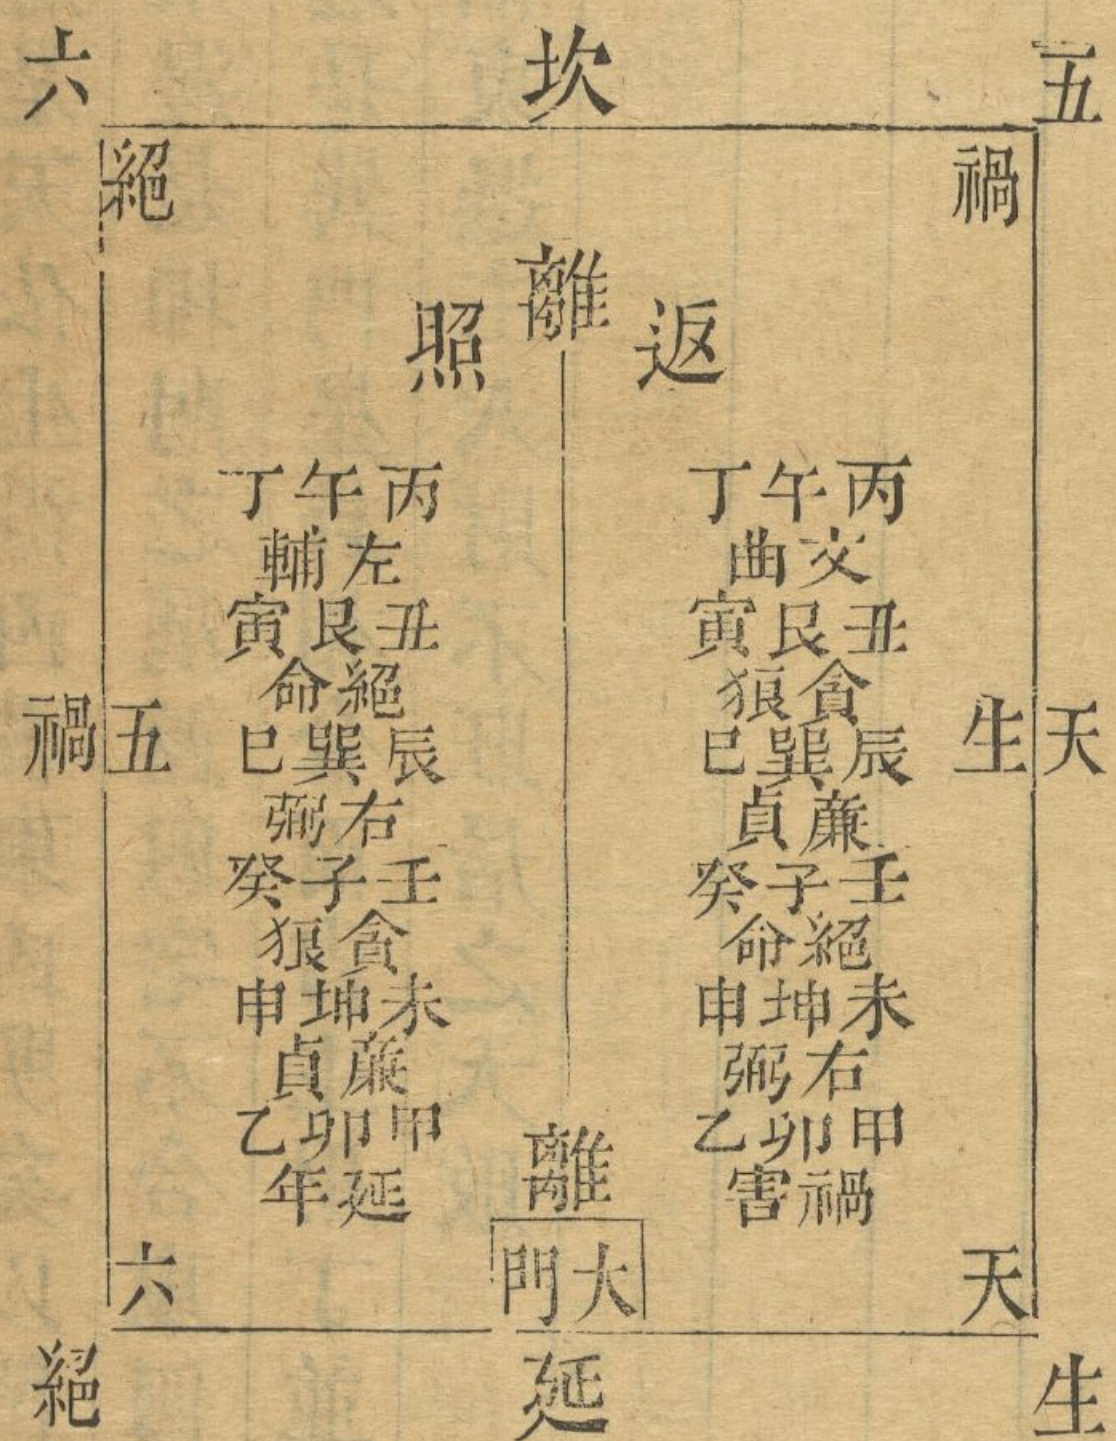 五
坎
六
禍
絕
離
返照
丙午丁
文曲
丑艮寅
貪狼
辰巽巳
廉貞
壬子癸
絕命
未坤申
右弼
甲卯乙
禍害
丙午丁
左輔
丑艮寅
絕命
辰巽巳
右弼
壬子癸
貪狼
未坤申
廉貞
甲卯乙
延年
天
生
五
禍
離
大門
天
六
生
延
絕